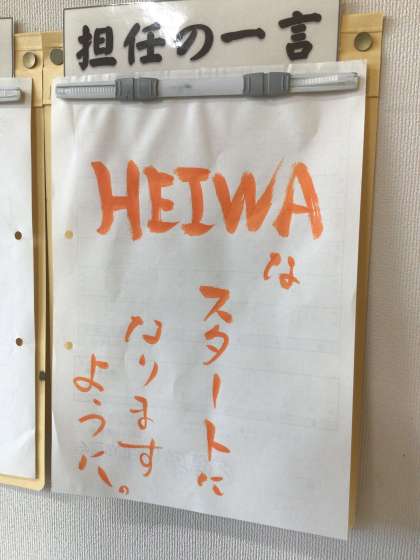 担任の一言
HEIWA
な
スタートに
なります
ように。